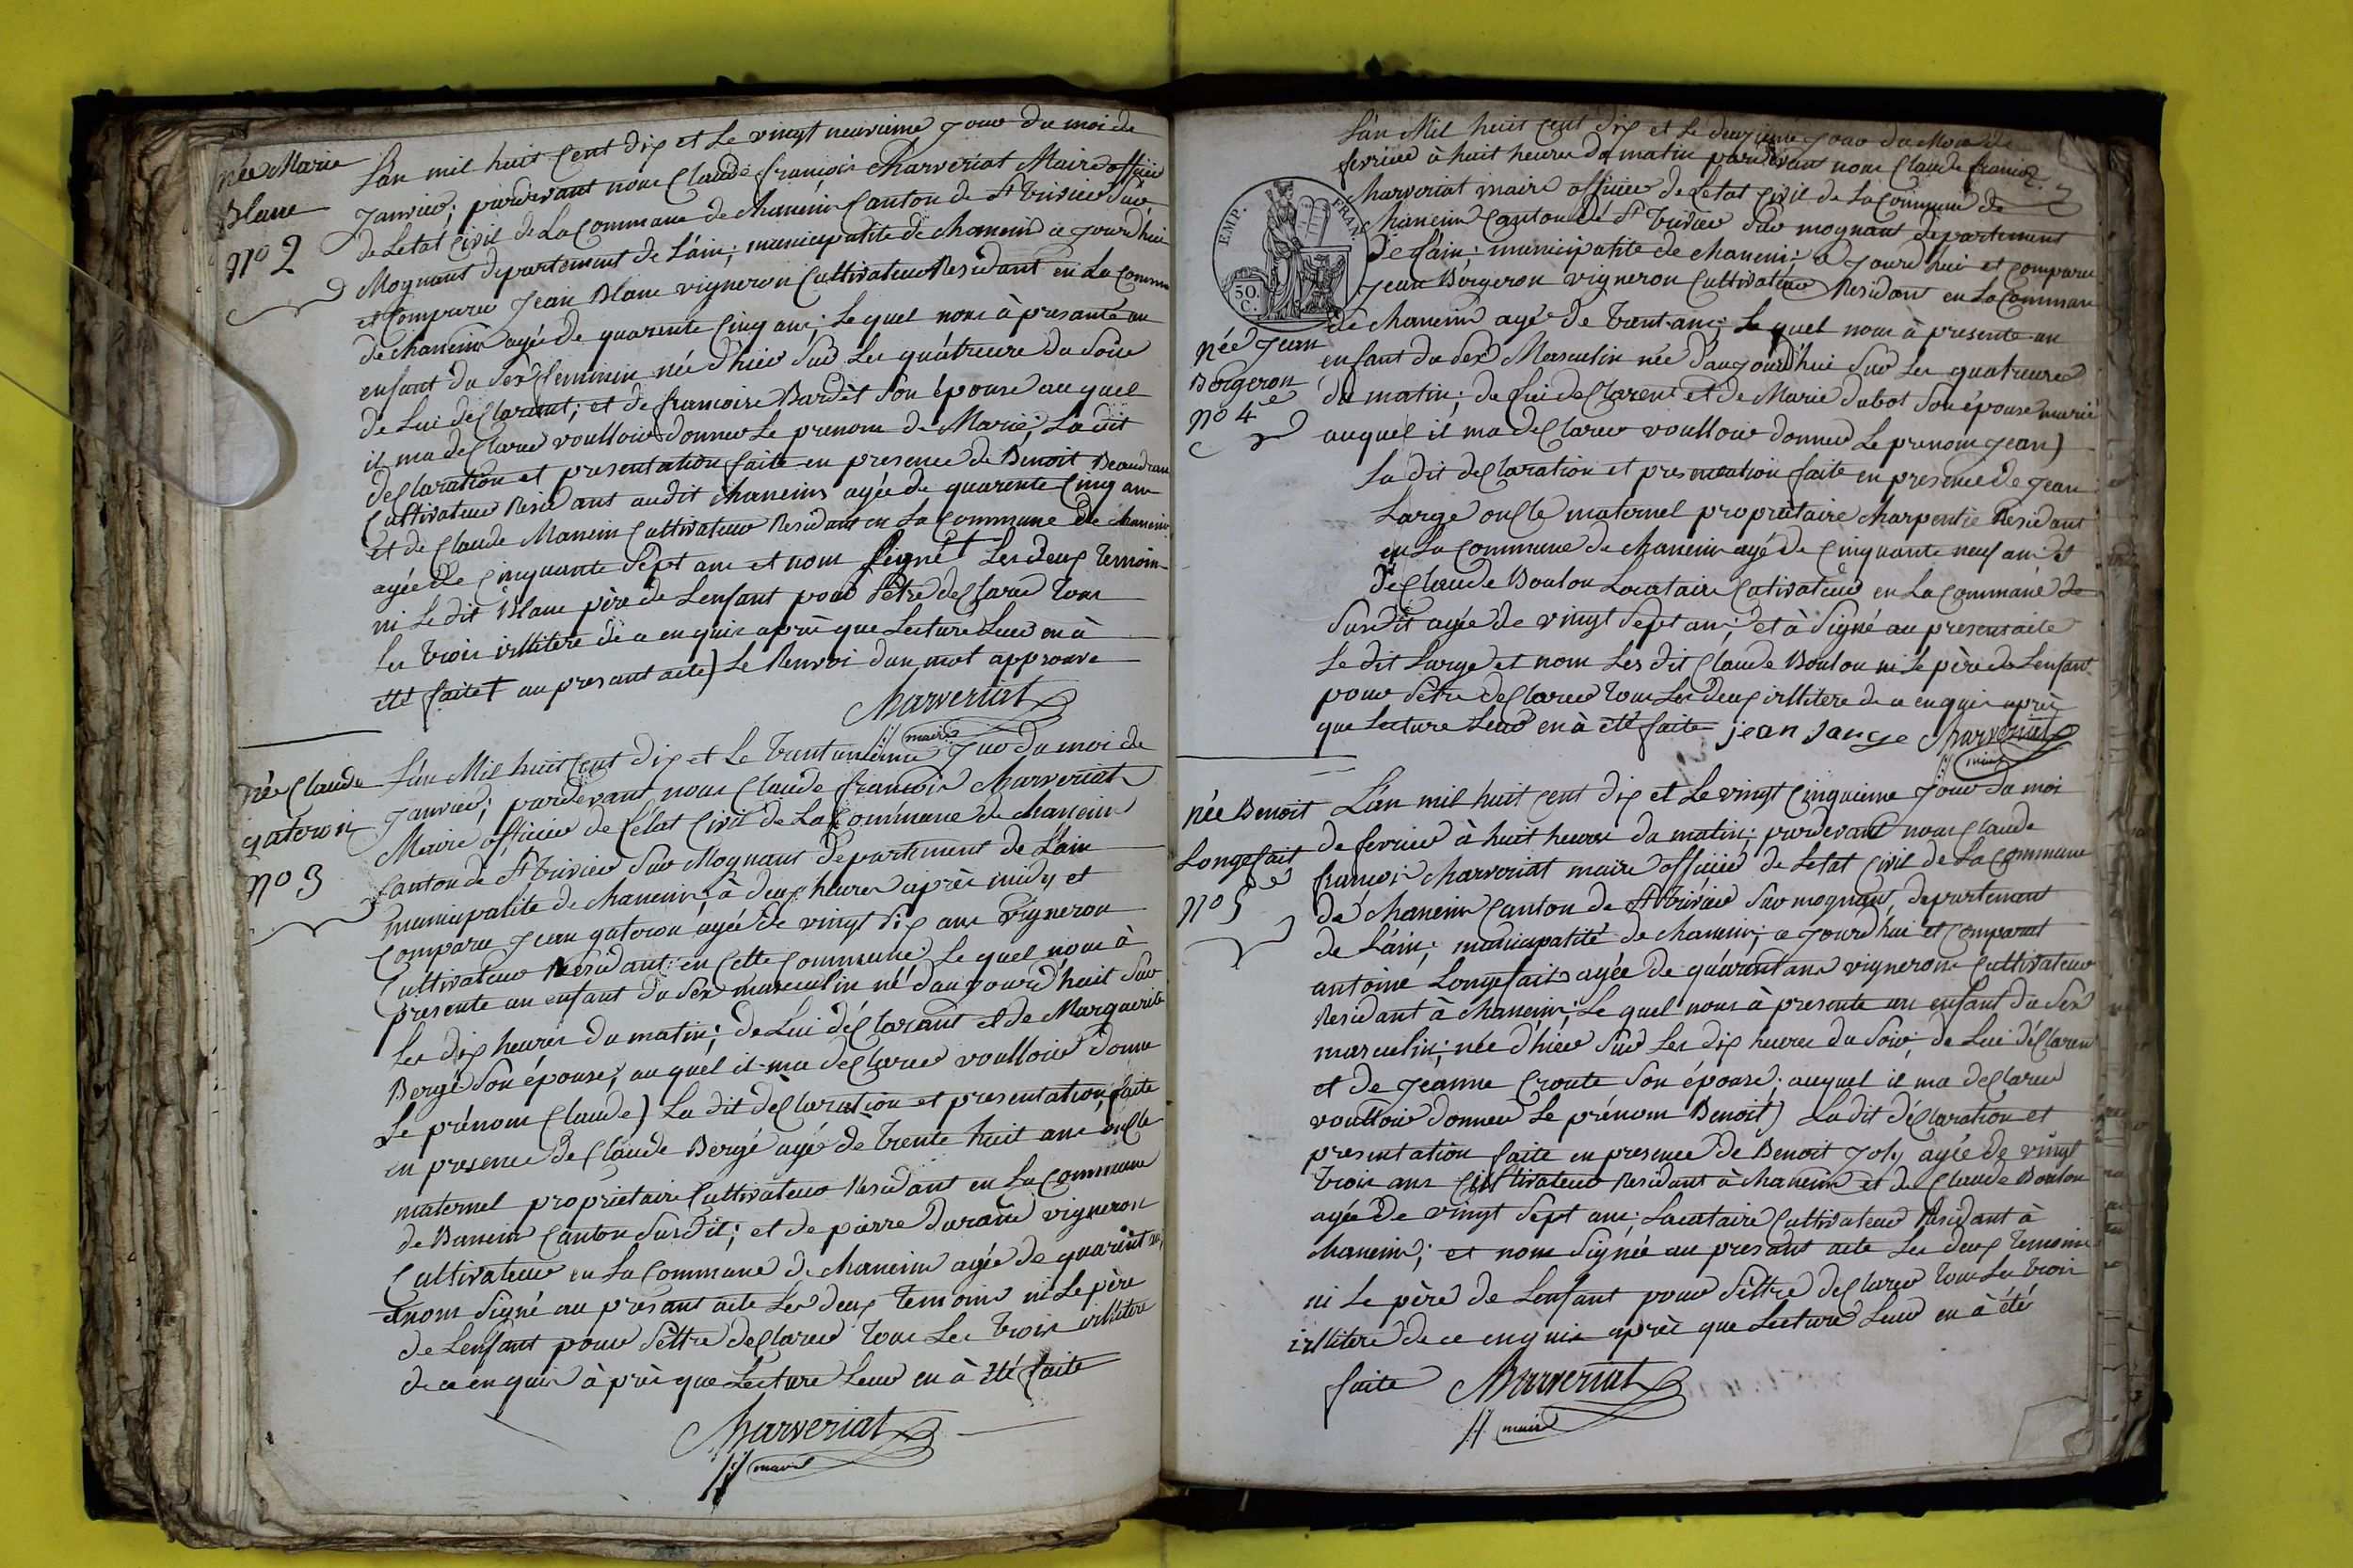 née Marie
Blanc
nº 2
L'an mil huit Cent dix et Le vingt neuvieme Jour du moi de
Janvier; pardevant nous Claude françois Charveriat Maire officier
de Letat Civil de La Commune de chaneins Canton de St Trivier Sur
Mognant departement de L'ain; municipalite de chaneins à Jourd'hui
et Comparu Jean Blanc vigneron Cultivateur Residant en La Commune
de chaneins agée de quarente Cinq ans; Le quel nous à presanté un
enfant du Sex feminin née d'hier Sur Les quatreure du Soir
de Lui declarant; et de francoise Bardet Son épouse au quel
il ma declaree voulloir donner Le prenom de Marie; La dit
declaration et presentation faite en presence de Benoit Beaudran
Cultivateur Residant audit chaneins agée de quarente Cinq ans
et de Claude Manein Cultivateur Residant en La Commune de chaneins
agée de Cinquante Sept ans et nom Signé + Les deux temoins
ni Le dit Blanc père de Lenfant pour S'être declaré tous
les trois illitere de ce enquis après que Lecture Leur en à
été faite + au presant acte) Le Renvoi dun mot approuve
Charveriat
maire
née Claude
gateron
nº 3
L'an Mil huit Cent dix et Le trentunieme Jour du moi de
Janvier; pardevant nous Claude francois Charveriat
Maire officier de L'état Civil de La Commune de chaneins
Canton de St Trivier Sur Mognant departement de L'ain
municipalité de chaneins, à deux heures après midy et
Comparu Jean gateron agée de vingt dix ans vigneron
Cultivateur Residant en Cette Commune Le quel nous à
presente un enfant du Sex masculin né d'aujourd'huit Sur
Les dix heures du matin; de Lui déclarant et de Marguerite
Bergé Son épouse; au quel il ma declaree voulloir donne
Le prénom Claude) La dit declaration et presentation faite
en presence de Claude Bergé agé de trente huit ans oncle
maternel proprietaire Cultivateur Residant en La Commune
de Baneins Canton Susdit; et de pierre durand vigneron
Cultivateur en La Commune de chaneins agée de quarent ans
et nom Signé au presant acte Les deux temoins ni Le père
de Lenfant pour S'êttre declaree tous Les trois illitere
de ce enquis à près que Lecture Leur en à été faite
Charveriat
maire
EMP. FRAN.
50.
C.
née Jean
Bergeron
nº 4
L'an Mil huit Cent dix et Le deuzieme Jour du Mois de
fevrier à huit heures du matin pardevant nous Claude francois
Charveriat maire officier de Letat Civil de La Commune de
chaneins Canton de St Trivier Sur mognant departement
de L'ain; municipalite de chaneins; à Jourd'hui et Comparu
Jean Bergeron vigneron Cultivateur Residant en La Commune
de chaneins agé de trent ans; Le quel nous à presente un
enfant du Sex Masculin née d'aujourd'hui Sur Les quatreures
du matin; de Lui declarent et de Marie dubot Son épouse marié
auquel il ma declaree voulloir donner Le prenom Jean)
La dit declaration et presentation faite en presence de Jean
Large oncle maternel proprietaire charpentie Residant
en La Commune de chaneins agé de Cinquante neuf ans et
de Claude Boulon Locataire Cutivateur en La Commune de
Susdit agée de vingt Sept ans; et à Signé au presens acte
Le dit Large et nom Les dit Claude Boulon ni Le père de Lenfant
pour S'être declaree tous Les deux illitere de ce enquis après
que Lecture Leur en à été faite jean Large Charveriat
maire
née Benoit
Longefait
nº 5
L'an mil huit Cent dix et Le vingt Cinquieme Jour du moi
de fevrier à huit heures du matin; pardevant nous Claude
françois Charveriat maire officier de Letat Civil de La Commune
de chaneins Canton de St Trivier Sur mognant, departement
de L'ain; municipalité de chaneins; à Jourd'hui et Comparut
antoine Longefait agée de quarant ans vignerons Cultivateur
Residant à chaneins; Le quel nous à presente un enfant du Sex
masculin; née d'hier Sur Les dix heures du Soir; de Lui déclaren
et de Jeanne Croute Son épouse; auquel il ma declaree
voulloir donner Le prénom Benoit) La dit déclaration et
presentation faite en presence de Benoit Joly agée de vingt
trois ans Cultivateur Residant à chaneins et de Claude Boulon
agée de vingt Sept ans; Locataire Cultivateur Residant à
chaneins; et nom Signée au presant acte Les deux temoins
ni Le père de Lenfant pour S'êttre declaree tous Les trois
illitere de ce enquis après que Lecture Leur en à été
faite Charveriat
maire